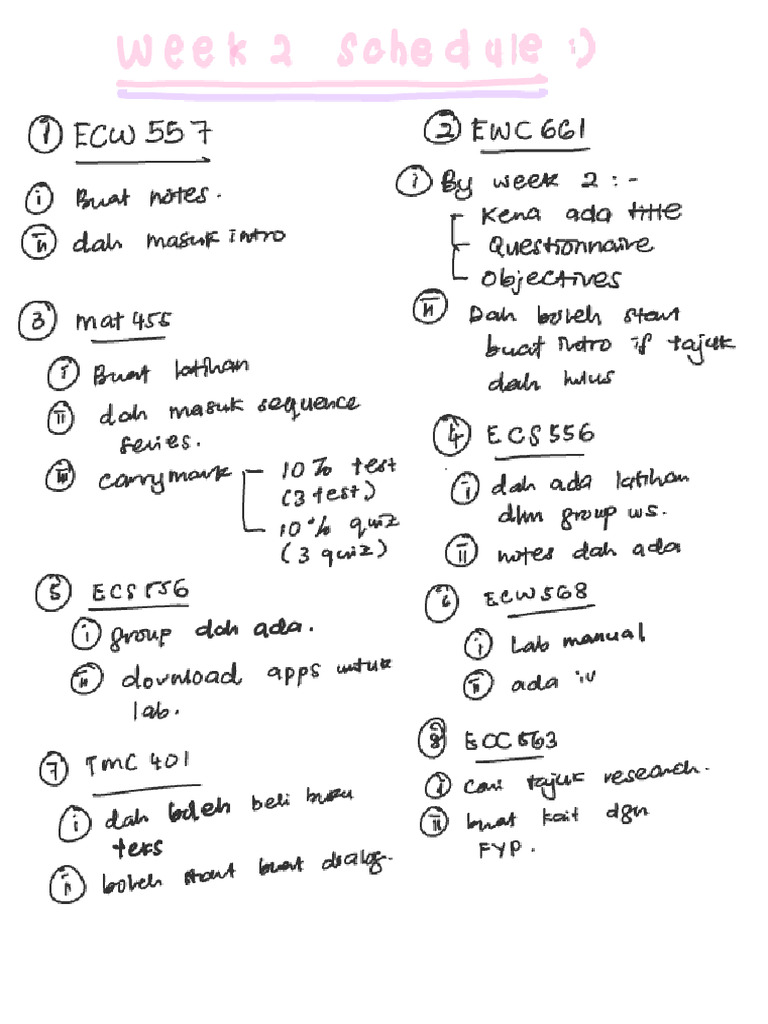 Week 2 Schedule :)
① ECW 557
i Buat notes.
ii dah masuk intro
② EWC 661
i By week 2 :-
Kena ada title
Questionnaire
Objectives
ii Dah boleh start
buat intro if tajuk
dah lulus
③ mat 455
i Buat latihan
ii dah masuk sequence
series.
iii carrymark
10% test
(3 test)
10% quiz
(3 quiz)
④ ECS 556
i dah ada latihan
dlm group ws.
ii notes dah ada
⑤ ECS 556
i group dah ada.
ii download apps untuk
lab.
⑥ ECW 568
i Lab manual
ii ada
⑦ TMC 401
i dah boleh beli buku
teks
ii boleh start buat dialog.
⑧ ECC 563
i cari tajuk research.
ii buat kait dgn
FYP.